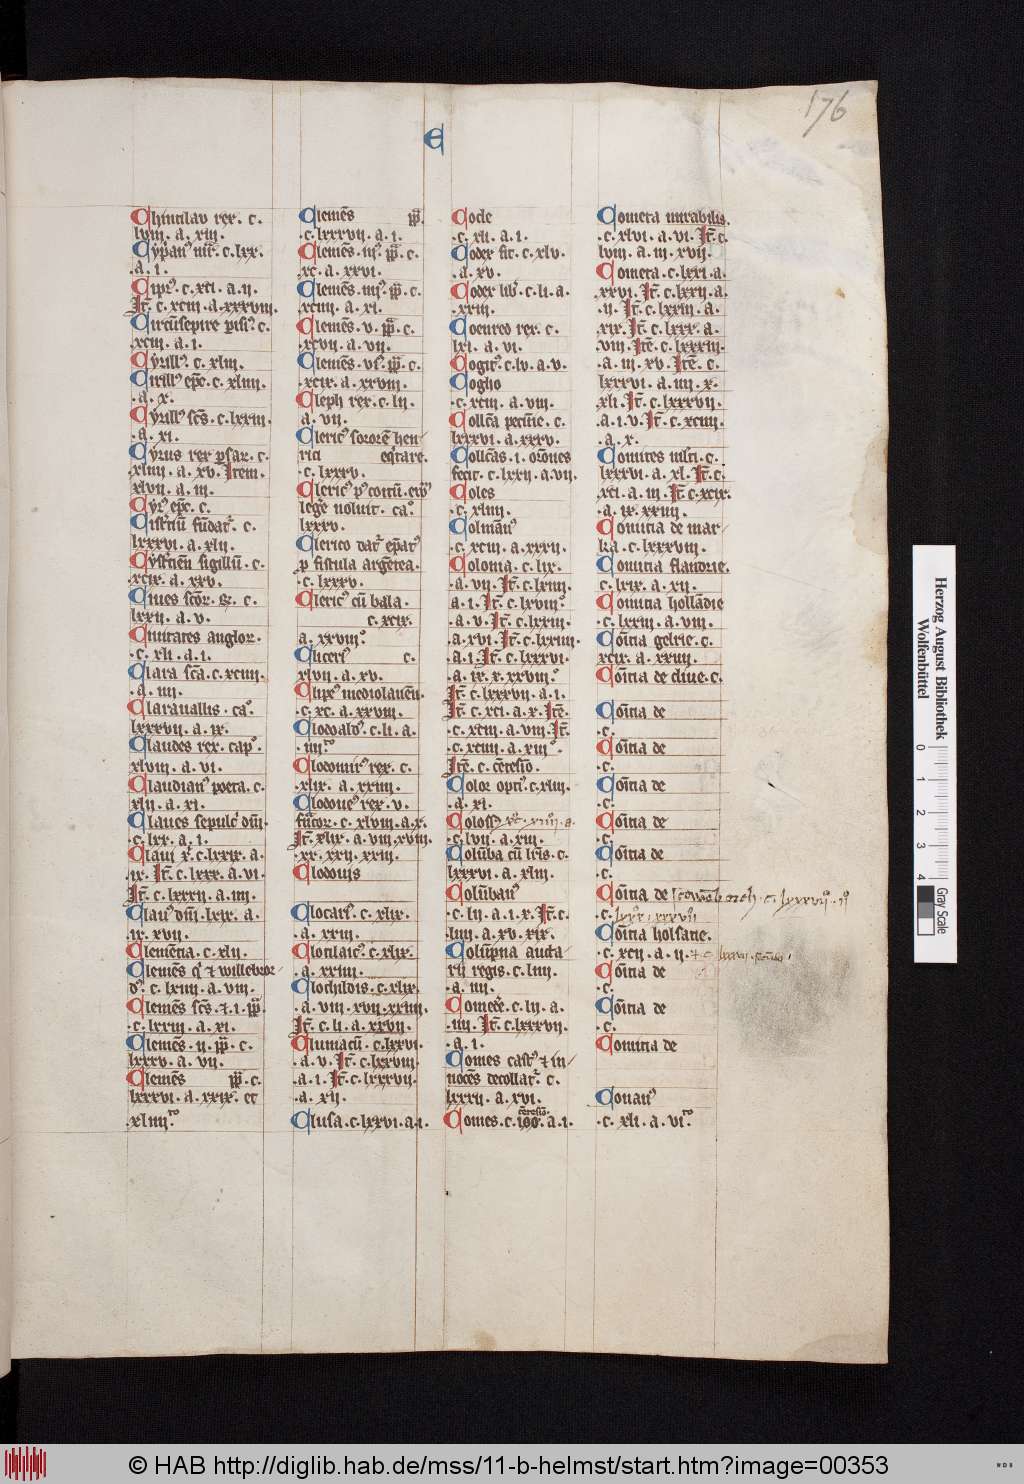 176
C
Chintilau rex. c.
lviii. a. xiii.
Cyp̄an᷒ mr̄. c. lxx.
.a. i.
Cipr᷒. c. xci. a. ii.
Itē. c. xciii. a. xxxviii.
Circūsepire pisi᷒. c.
xciii. a. i.
Cyrill᷒. c. xliii.
Cirill᷒ ep̄c. c. xliiii.
.a. x.
Cyrill᷒ sc̄s. c. lxxiii.
.a. xi.
Cyrus rex psar. c.
xliiii. a. xv. Item.
xlvii. a. iii.
Cyr᷒ ep̄c. c.
Cist̄ciū fūdat᷒. c.
lxxxvi. a. xlii.
Cystciēn sigillū. c.
xcix. a. xxv.
lxxii. a. v.
Ciuitates anglor.
.c. xli. a. i.
Clara sc̄a. c. xciiii.
.a. iiii.
Clarauallis. ca᷒.
lxxxvii. a. ix.
Claudes rex. cap᷒.
xlviii. a. vi.
Claudian᷒ poeta. c.
xlii. a. xi.
Claues sepulc̄ dn̄i.
.c. lxx. a. i.
Claui xr̄. c. lxxix. a.
ix. Itē. c. lxxx. a. vi.
Itē. c. lxxxii. a. iiii.
Clau᷒ dn̄i. lxix. a.
ix. xvii.
Clementia. c. xlii.
Clemēs q᷒ ⁊ willebror-
d᷒. c. lxiiii. a. viii.
Clemēs sc̄s. ⁊. i. pp̄.
.c. lxxiii. a. xi.
Clemēs. ii. pp̄. c.
lxxxv. a. vii.
Clemēs pp̄. c.
lxxxvi. a. xxix. et
xliiii.to
Clemēs pp̄.
.c. lxxxvii. a. i.
Clemēs. iii᷒. pp̄. c.
xc. a. xxvi.
Clemēs. iiii᷒. pp̄. c.
xciiii. a. xi.
Clemēs. v. pp̄. c.
xcvii. a. vii.
Clemēs. vi᷒. pp̄. c.
.xcix. a. xxviii.
Cleph rex. c. lii.
a. vii.
Cleric᷒ sororē hen-
rici eq̄tare.
.c. lxxxv.
legē noluit. ca᷒.
lxxxv.
Clerico dat᷒ ep̄at᷒
p fistula argētea.
.c. lxxxv.
Cleric᷒ cū bala.
c. xcix.
a. xxviii᷒.
Cliceri᷒ c.
xlvii. a. xv.
Clipe᷒ mediolanēn.
.c. xc. a. xxviii.
Clodoald᷒. c. li. a.
.iiii.to
Clodomir᷒ rex. c.
.xlix. a. xxiiii.
Clodoue᷒ rex. v.
frācor. c. xlviii. a. x.
Itē. xlix. a. viii. xviii.
.xx. xxii. xxiii.
Clodouis
Clotari᷒. c. xlix.
.a. xxiii.
Clotilaic᷒. c. xlix.
.a. xxiiii.
Clochildis. c. xlix.
.a. viii. xvii. xxiiii.
Itē. c. li. a. xxvii.
Cluniacū. c. lxxvi.
.a. v. Itē. c. lxxviii.
.a. i. Itē. c. lxxxvii.
.a. xii.
Clusa. c. lxxvi. a. i.
Code
.c. xli. a. i.
Codex fit. c. xlv.
.a. xv.
Codex lib᷒. c. li. a.
.xxiii.
Coenreo rex. c.
lxi. a. vi.
Cogit᷒. c. lv. a. v.
Coglio
.c. xciii. a. viii.
Collc̄a pecūie. c.
lxxxvi. a. xxxv.
Collc̄as. i. or̄ones
fecit. c. lxxii. a. vii.
Coles
.c. xliiii.
Colmān᷒
.c. xciii. a. xxxii.
Colonia. c. lix.
.a. vii. Itē. c. lxiiii.
a. i. Itē. c. lxviii᷒.
.a. v. Itē. c. lxxiii.
.a. xvi. Itē. c. lxxiiii.
.a. i. Itē. c. lxxxvi.
.a. ix. x. xxviii᷒.
Itē. c. lxxxvii. a. i.
Itē. c. xci. a. x. Itē.
.c. xciii. a. viii. Itē.
.c. xciiii. a. xiii᷒.
Itē. c. cētesīo.
Color opti᷒. c. xliii.
.a. xi.
.c. lvii. a. xiii.
Colūba cū lr̄is. c.
lxxxvi. a. xliii.
Colūban᷒
.c. lii. a. i. x. Itē. c.
liiii. a. xv. xix.
Colūpna aucta-
rii regis. c. liiii.
.a. iiii.
Comec̄e. c. lii. a.
.iiii. Itē. c. lxxxvii.
.a. i.
Comes cast᷒ ⁊ in-
nocēs decollat᷒. c.
lxxxii. a. xvi.
Comes. c. a. i.
Cometa mirabilis.
.c. xlvi. a. vi. Itē. c.
lviii. a. iii. xvii.
Cometa. c. lxxi. a.
xxvi. Itē. c. lxxii. a.
.ii. Itē. c. lxxiii. a.
xix. Itē. c. lxxx. a.
viii. Itē. c. lxxxiii.
.a. iii. xv. Itē. c.
lxxxvi. a. iiii. x.
xli. Itē. c. lxxxvii.
.a. i. v. Itē. c. xciiii.
.a. x.
Comites mlti. c.
lxxxvi. a. xl. Itē. c.
xci. a. iii. Itē. c. xcix.
.a. ix. xxiiii.
Comitia de mar-
ka. c. lxxxviii.
Comitia flandrie.
c. lxix. a. xii.
Comitia hollādie
.c. lxxiii. a. viii.
Com̄itia gelrie. c.
xcix. a. xxiiii.
Com̄itia de cliue. c.
Com̄itia de
.c.
Com̄itia de
.c.
Com̄itia de
.c.
Com̄itia de
.c.
Com̄itia de
.c.
Com̄itia de
.c.
Com̄itia holsatie.
.c. xcii. a. ii.
Com̄itia de
.c.
Com̄itia de
.c.
Comitia de
Conan᷒
.c. xli. a. vi.to
Herzog August Bibliothek
Wolfenbüttel
0 1 2 3 4
Gray Scale
© HAB http://diglib.hab.de/mss/11-b-helmst/start.htm?image=00353